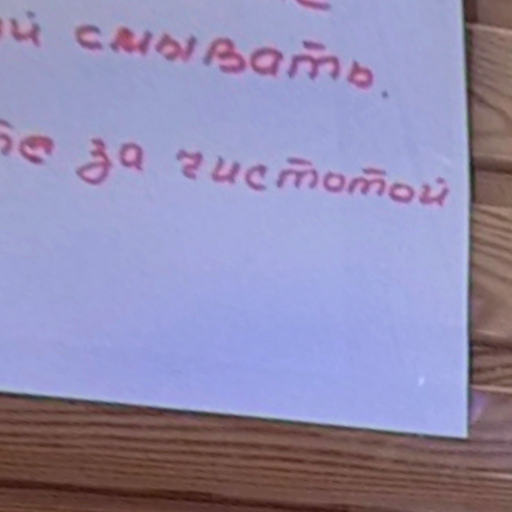 смывать.
за чистотой